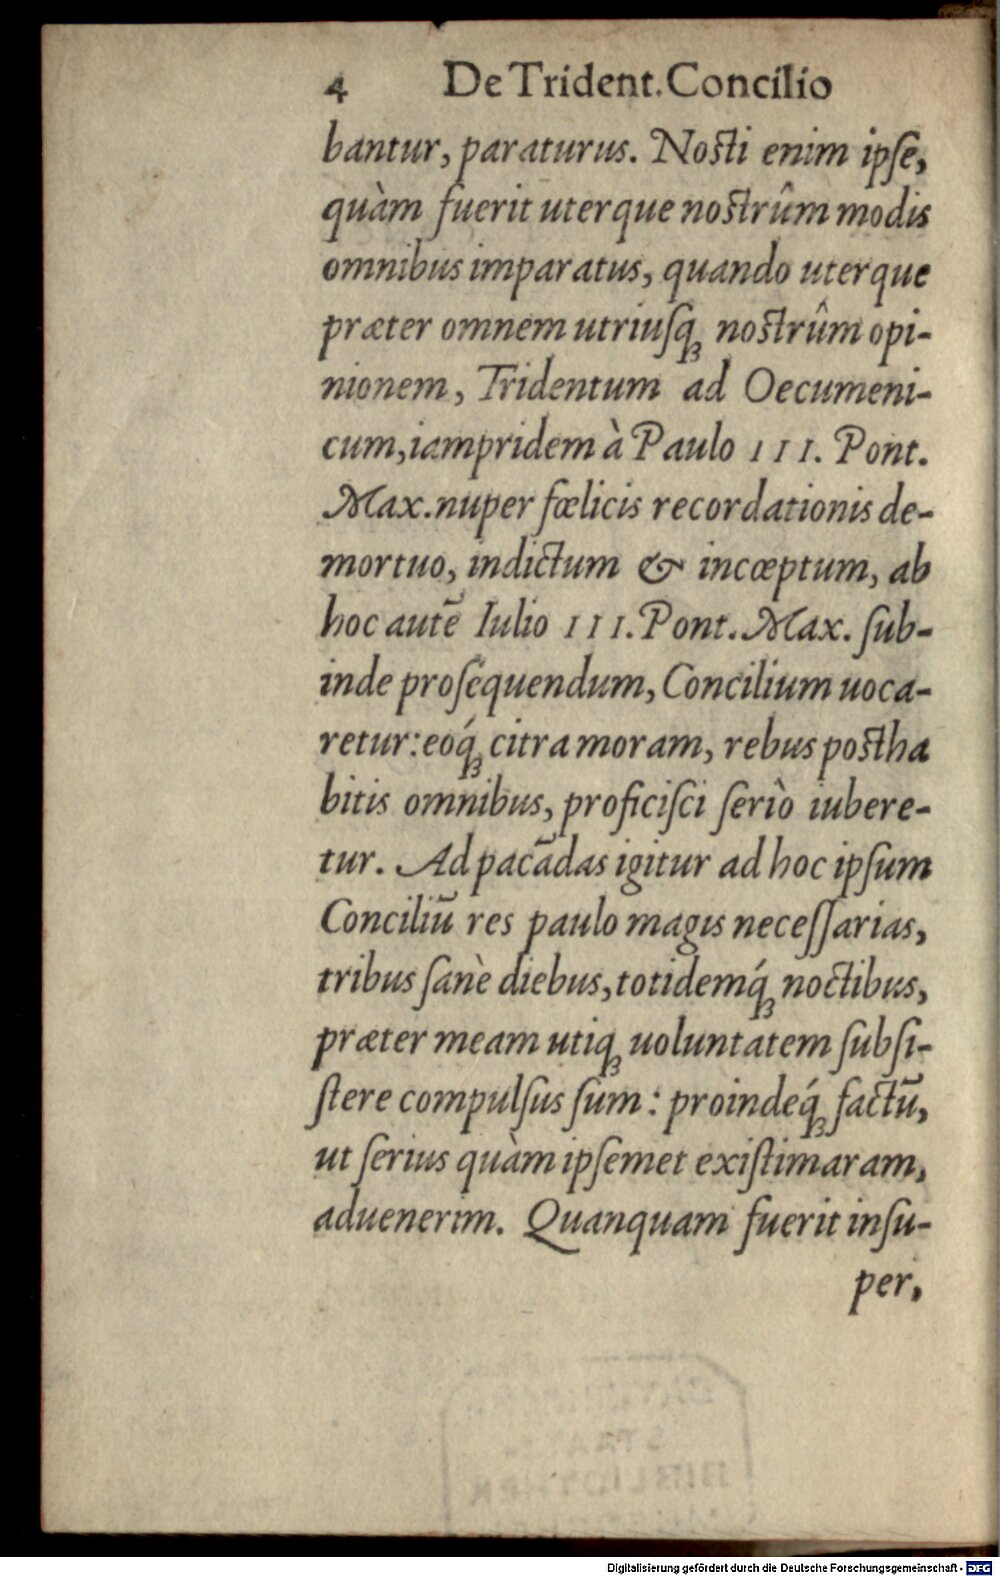 4 De Trident. Concilio
bantur, paraturus. Nosti enim ipſe,
quàm fuerit uterque nostrûm modis
omnibus imparatus, quando uterque
præter omnem utriuſqꝫ nostrûm opi-
nionem, Tridentum ad Oecumeni-
cum, iampridem à Paulo III. Pont.
Max. nuper fœlicis recordationis de-
mortuo, indictum & incœptum, ab
hoc autẽ Iulio III. Pont. Max. ſub-
inde proſequendum, Concilium uoca-
retur: eoq́ꝫ citra moram, rebus postha
bitis omnibus, proficiſci ſeriò iubere-
tur. Ad pacãdas igitur ad hoc ipſum
Conciliũ res paulo magis neceſſarias,
tribus ſanè diebus, totidemq́ꝫ noctibus,
præter meam utiqꝫ uoluntatem ſubſi-
ſtere compulſus ſum: proindeq́ꝫ factũ,
ut ſerius quàm ipſemet exiſtimaram,
aduenerim. Quanquam fuerit inſu-
per,
Digitalisierung gefördert durch die Deutsche Forschungsgemeinschaft - DFG